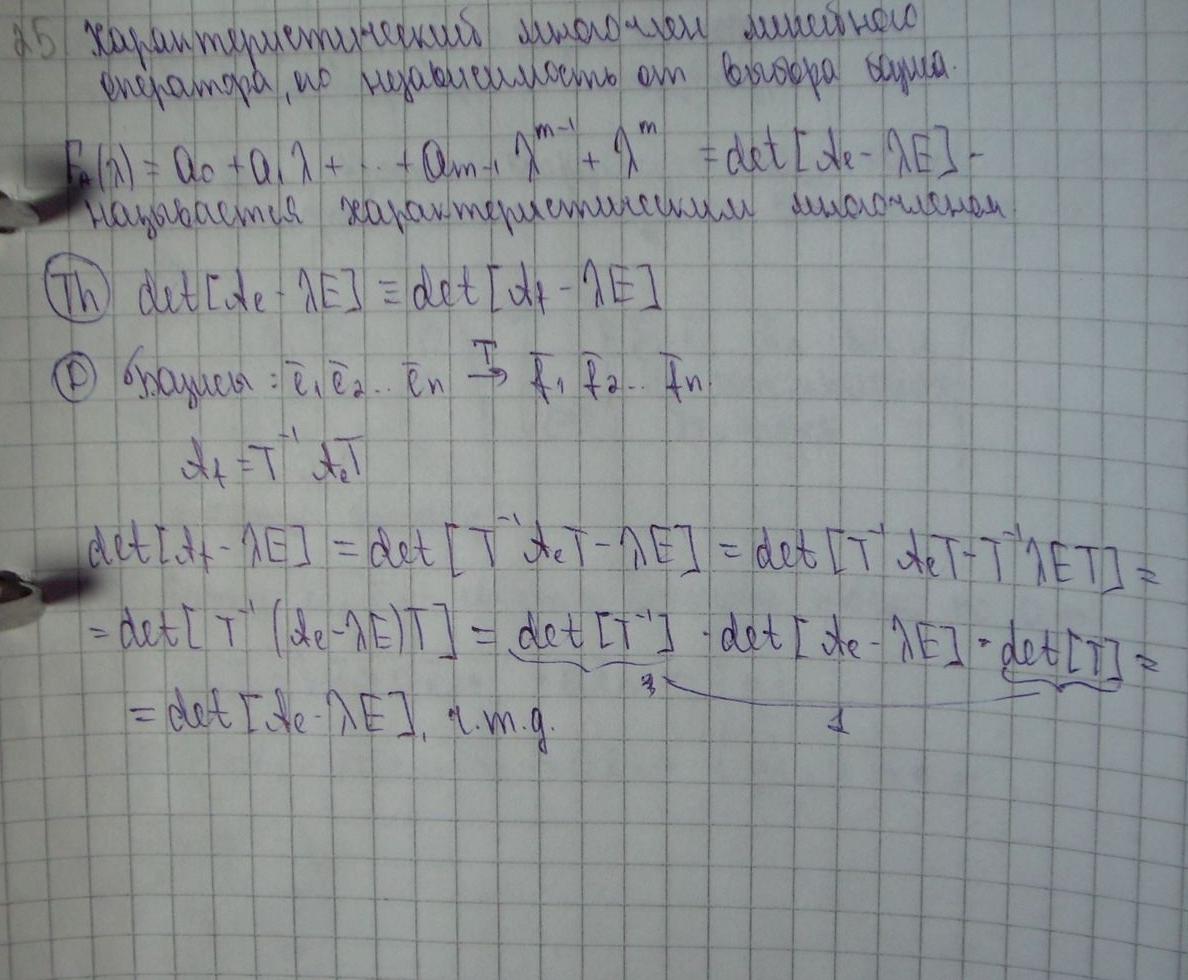 25 Характеристический многочлен линейного
оператора, но независимость от выбора базиса.
F_A(λ) = a₀ + a₁λ + ... + a_{m-1} λ^{m-1} + λ^m = det[A_e - λE] -
называется характеристическим многочленом
Th det[A_e - λE] ≡ det[A_f - λE]
D базисы: e̅₁ e̅₂ .. e̅n →^T f̅₁ f̅₂ .. f̅n
A_f = T⁻¹ A_e T
det[A_f - λE] = det[T⁻¹A_eT - λE] = det[T⁻¹A_eT - T⁻¹λET] =
= det[T⁻¹(A_e - λE)T] = det[T⁻¹] · det[A_e - λE] · det[T] =
1
= det[A_e - λE], ч.т.д.